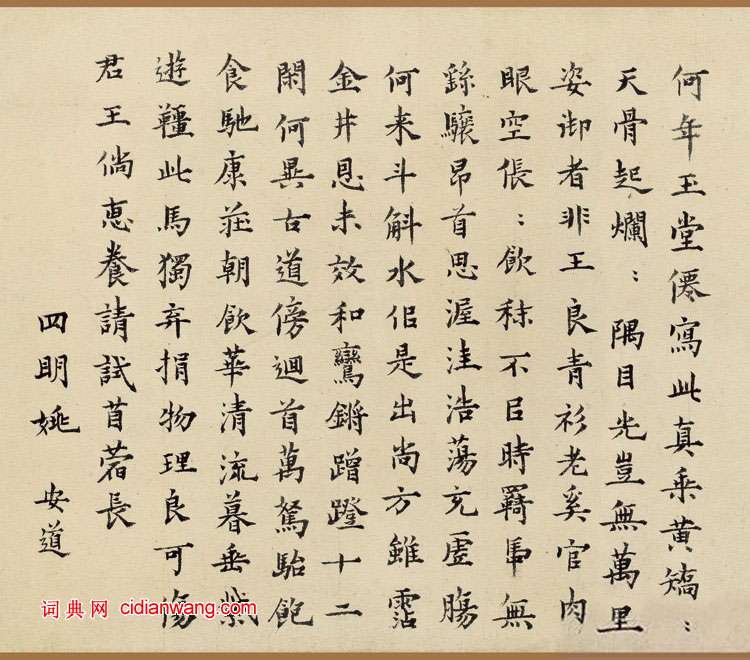 何年玉堂僊寫此真乘黃矯〻
天骨起爛〻隅目光豈無萬里
姿御者非王良青衫老奚官肉
眼空倀〻飲秣不㠯時羈馽無
繇驤昂首思渥洼浩蕩充虛腸
何来斗斛水佀是出尚方雖霑
金井恩未效和鸞鏘蹭蹬十二
閑何異古道傍迴首萬駑駘飽
食馳康莊朝飲華清流暮垂紫
遊韁此馬獨弃捐物理良可傷
君王倘惠養請試苜蓿長
四明姚安道
词典网 cidianwang.com